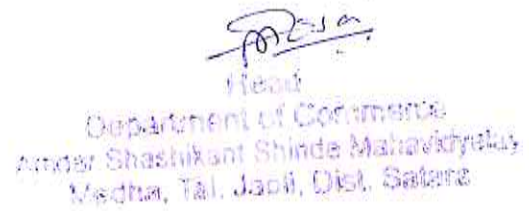 Head
Department of Commerce
Amdar Shashikant Shinde Mahavidyalay
Medha, Tal. Jaoli, Dist. Satara